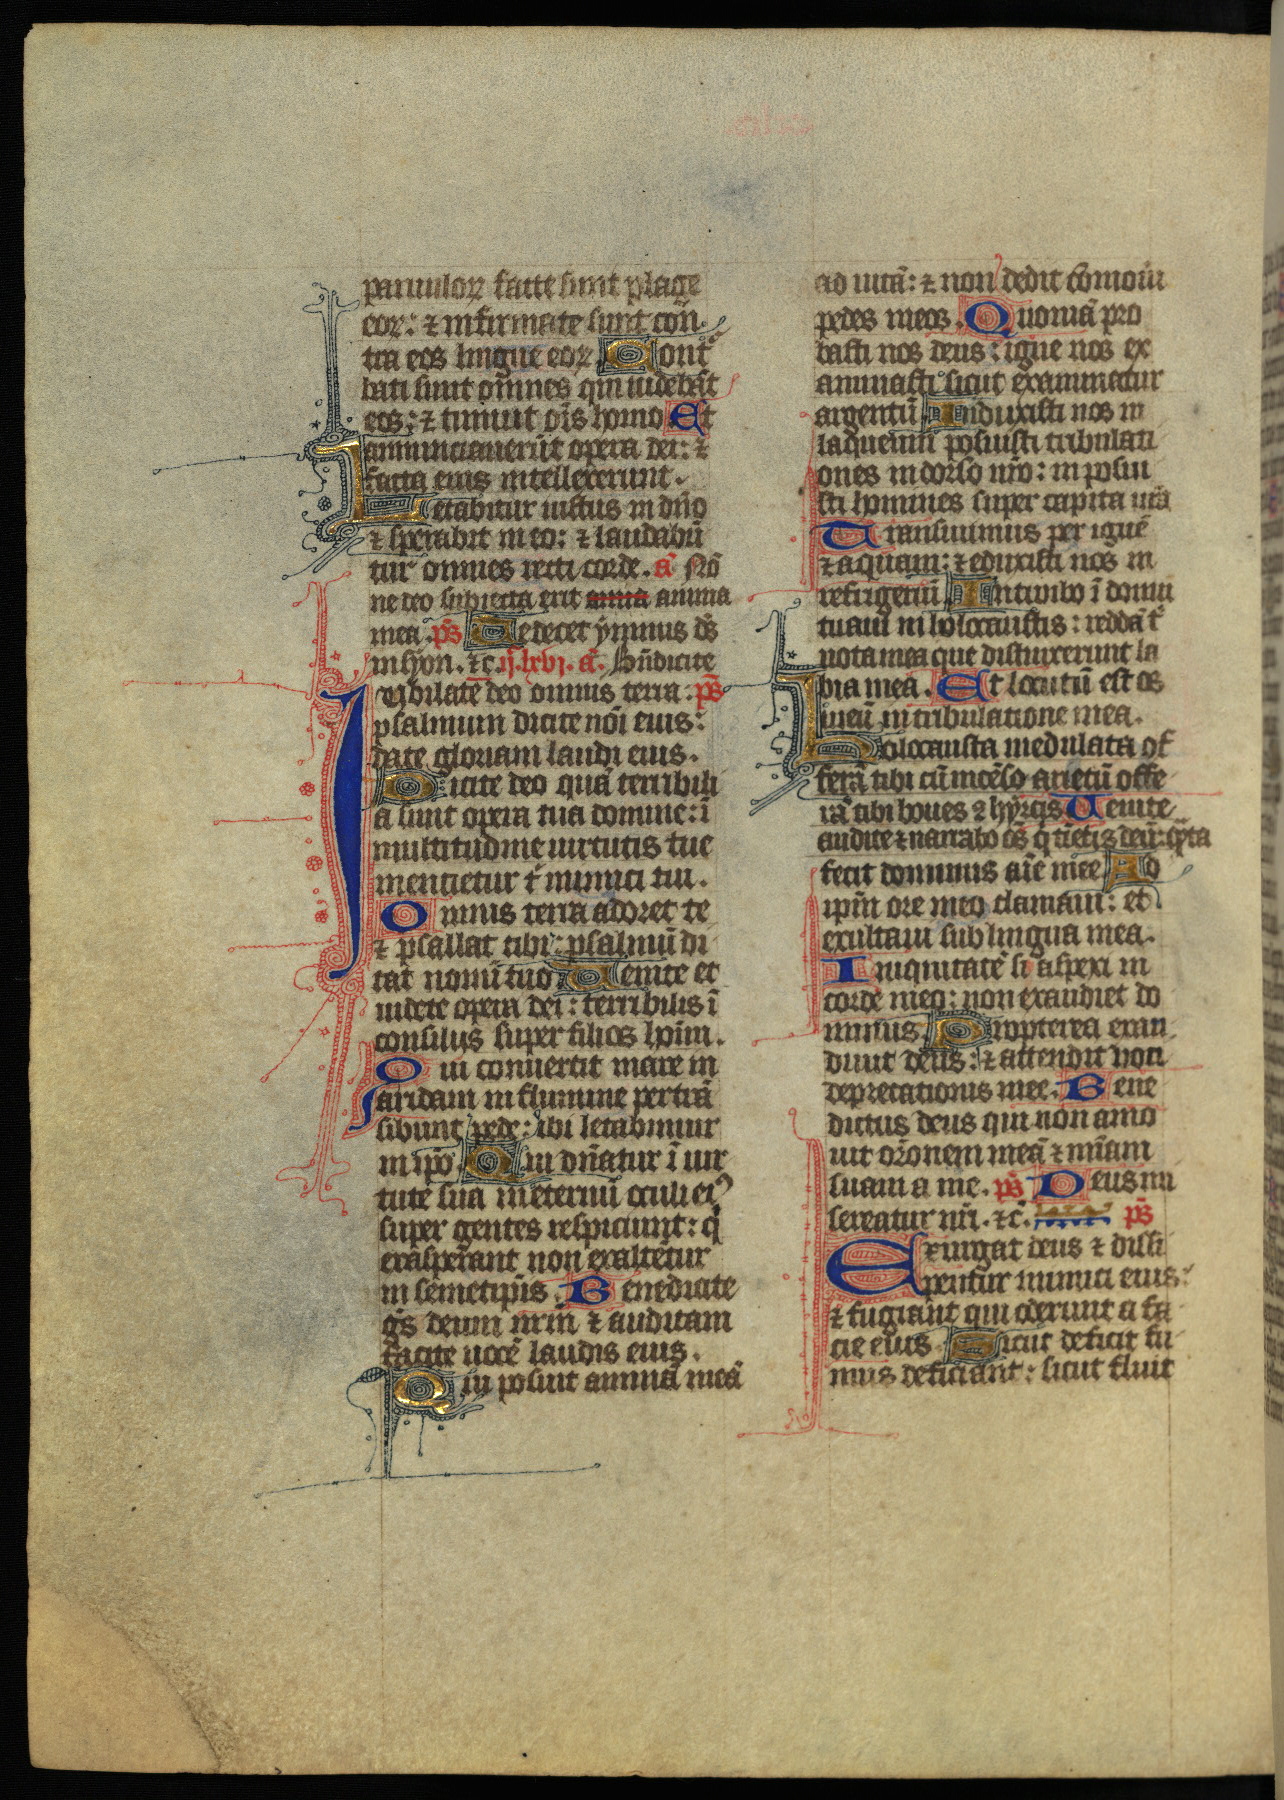 paruulorꝝ facte sunt plage
eorꝝ: ⁊ infirmate sunt cōn
tra eos lingue eorꝝ Cont᷑
bati sunt om̄nes qui uidebāt
eos: ⁊ timuit oīs homo Et
annunciauerūt opera dei: ⁊
facta eius intellexerunt.
Letabitur iustus in dn̄o
⁊ sperabit in eo: ⁊ laudabū
tur omnes recti corde. a͞ Nō
ne deo subiecta erit anima
mea. ps̄ Te decet ymnus ds̄
in syon. ⁊c̄. ij. lxvj. a͞. Bn̄dicite
Iubilate deo omnis terra: ps̄
psalmum dicite noī eius:
date gloriam laudi eius.
Dicite deo quā terribili
a sunt opera tua domine: ī
multitudine uirtutis tue
mencietur t̄ inimici tui.
Omnis terra adoret te
⁊ psallat tibi: psalmū di
cat nomī tuo Uenite et
uidete opera dei: terribilis ī
consiliis super filios hoīm.
Qui conuertit mare in
aridam in flumine pertrā
sibunt pede: ibi letabimur
in ip̄o Qui dn̄atur ī uir
tute sua in eternū oculi ei᷒
super gentes respiciunt: q̄
exasperant non exaltetur
in semetipīs. Benedicite
gēs deum nr̄m ⁊ auditam
facite uocē laudis eius.
Qui posuit animā meā
ad uitā: ⁊ non dedit cōmoūi
pedes meos. Quoniā pro
basti nos deus: igne nos ex
aminasti sicut examinatur
argentū Induxisti nos in
laqueum posuisti tribulati
ones in dorso nr̄o: inposui
sti homines super capita nr̄a
Transiuimus per ignē
⁊ aquam: ⁊ eduxisti nos in
refrigeriū Introibo ī domū
tuam in holocaustis: reddā t̄
uota mea que distinxerunt la
bia mea. Et locutū est os
meū in tribulatione mea.
Holocausta medulata of
ferā tibi cū incēso arietū offe
rā tibi boues ⁊ hyrcis Uenite
audite ⁊ narrabo oēs q̄ tīetis deū: q̄nta
fecit dominus aīe mee Ad
ipm̄ ore meo clamaui: et
exultaui sub lingua mea.
Iniquitatē si aspexi in
corde meo: non exaudiet do
minus. Propterea exau
diuit deus: ⁊ attendit uoci
deprecationis mee. Bene
dictus deus qui non amo
uit or̄onem meā ⁊ mīam
suam a me. ps̄ Deus mi
sereatur nr̄i. ⁊c̄. ps̄
Exurgat deus ⁊ dissi
pentur inimici eius:
⁊ fugiant qui oderunt a fa
cie eius Sicut deficit fu
mus deficiant: sicut fluit